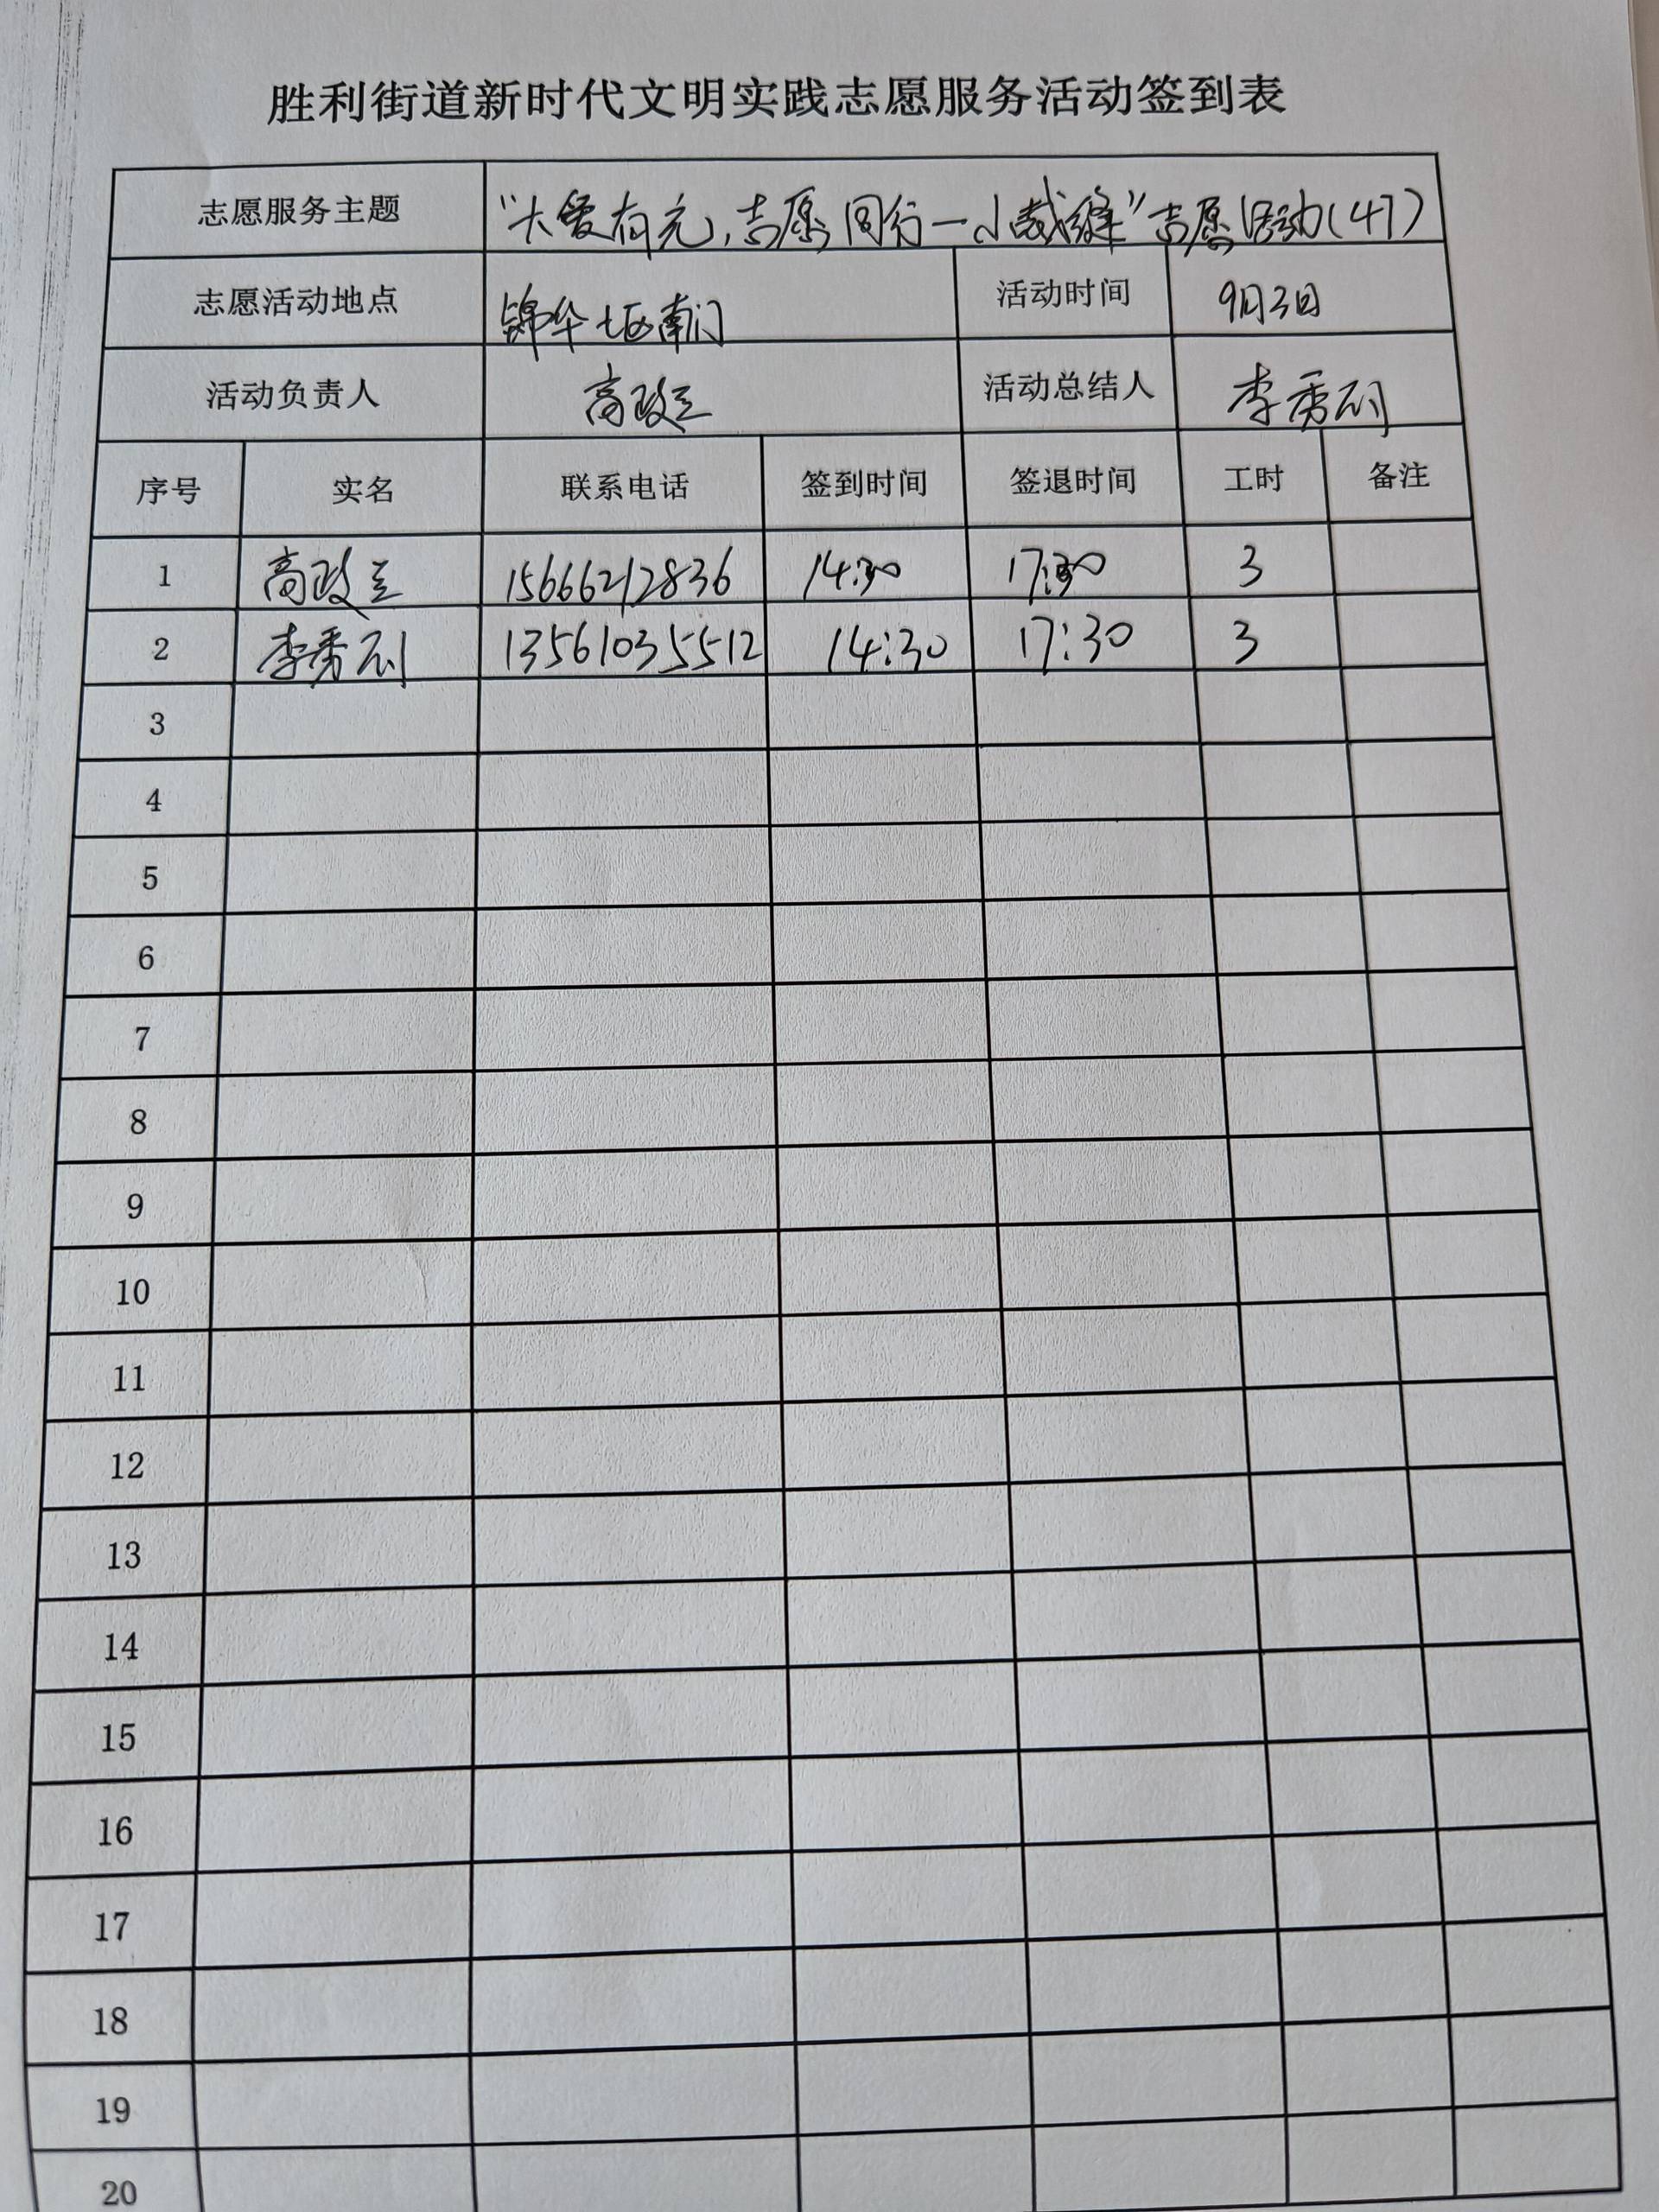 胜利街道新时代文明实践志愿服务活动签到表
志愿服务主题 "大爱有充,志愿同行一小裁缝"志愿活动(47)
志愿活动地点 锦华七区南门 活动时间 9月3日
活动负责人 高政立 活动总结人 李秀刚
序号 实名 联系电话 签到时间 签退时间 工时 备注
1 高政立 15666212836 14:30 17:30 3
2 李秀刚 13561035512 14:30 17:30 3
3
4
5
6
7
8
9
10
11
12
13
14
15
16
17
18
19
20